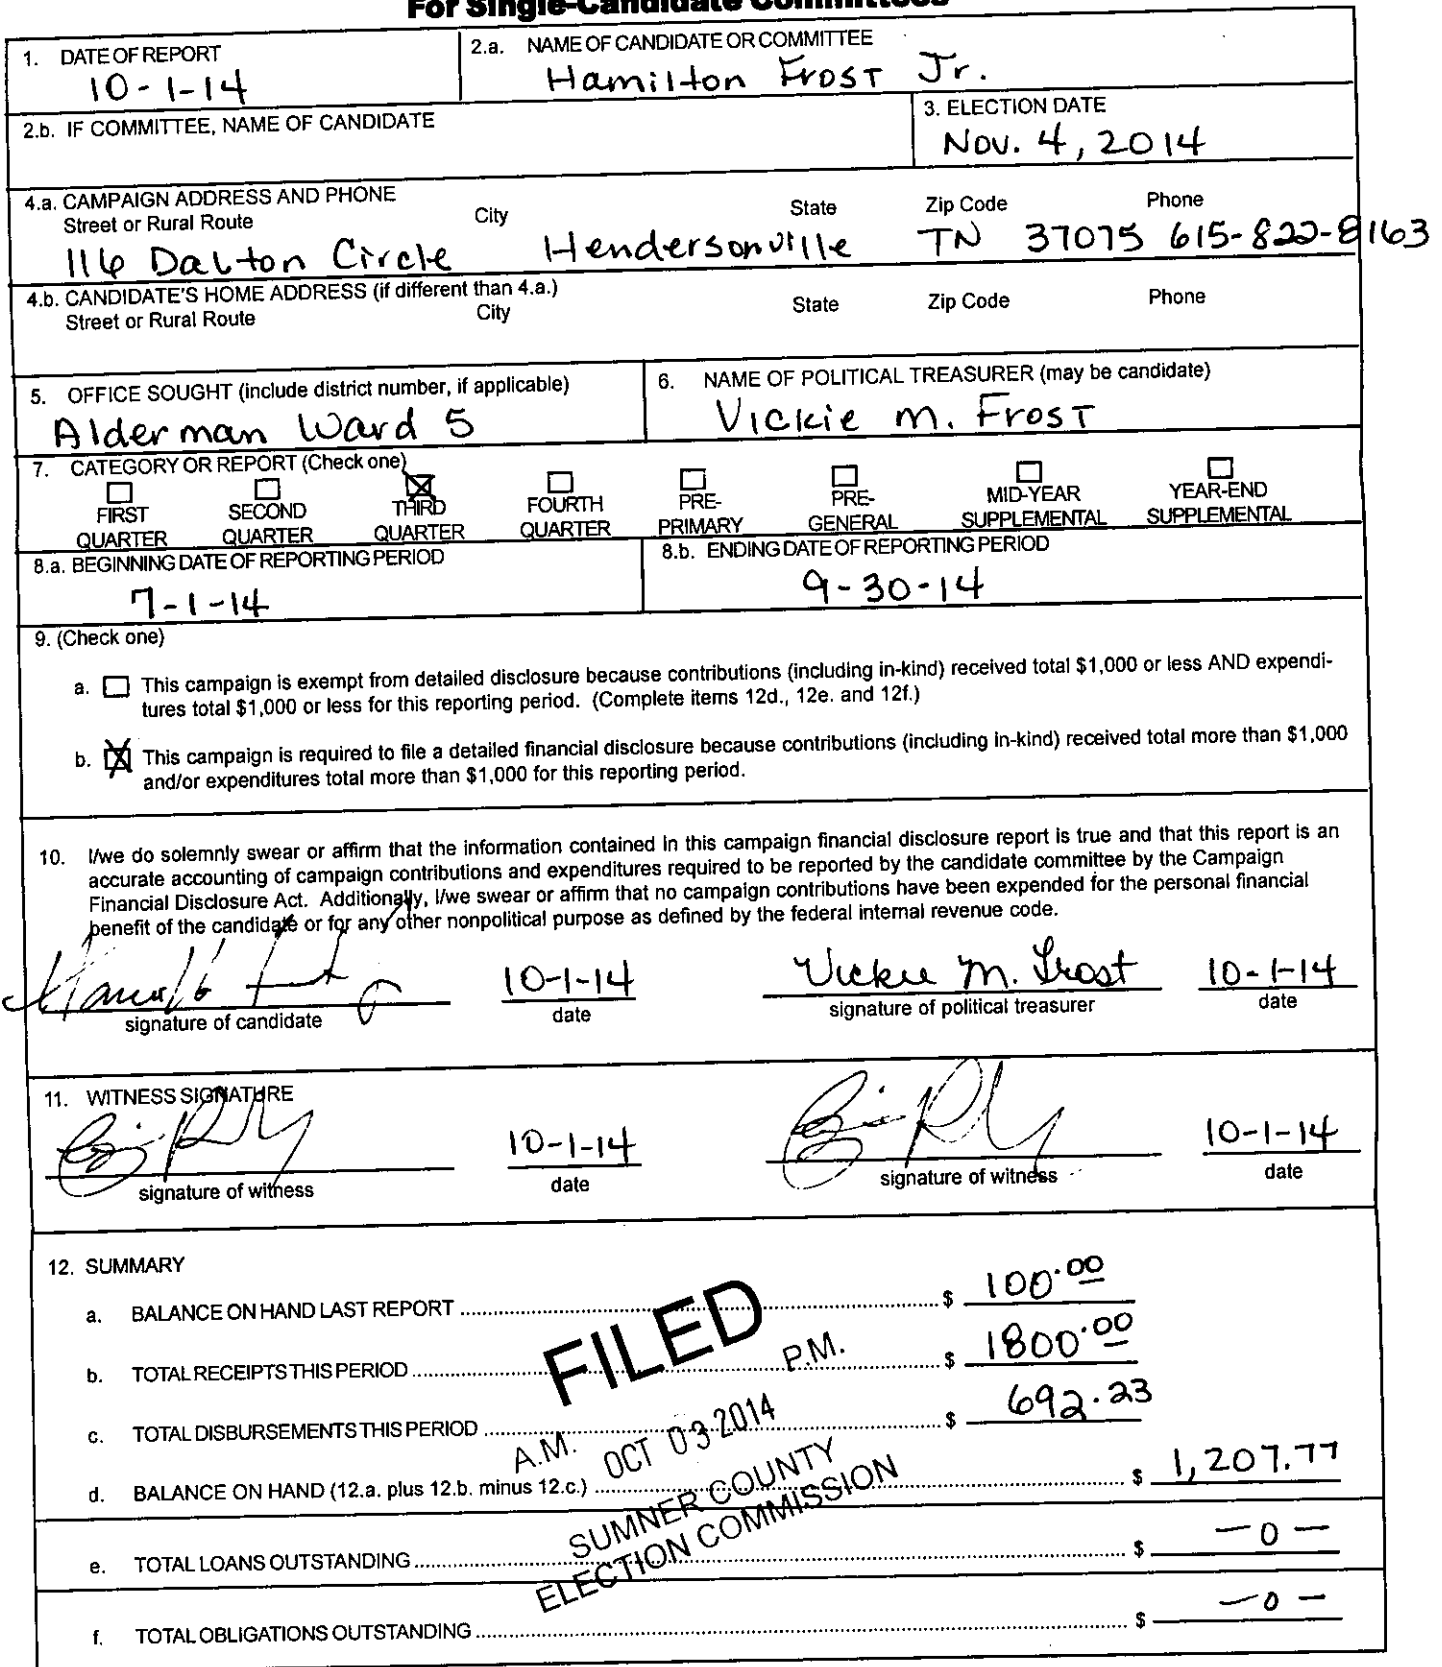 For Single-Candidate Committees
1. DATE OF REPORT
10-1-14
2.a. NAME OF CANDIDATE OR COMMITTEE
Hamilton Frost Jr.
2.b. IF COMMITTEE, NAME OF CANDIDATE
3. ELECTION DATE
Nov. 4, 2014
4.a. CAMPAIGN ADDRESS AND PHONE
Street or Rural Route City State Zip Code Phone
116 Dalton Circle Hendersonville TN 37075 615-822-8163
4.b. CANDIDATE'S HOME ADDRESS (if different than 4.a.)
Street or Rural Route City State Zip Code Phone
5. OFFICE SOUGHT (include district number, if applicable)
Alderman Ward 5
6. NAME OF POLITICAL TREASURER (may be candidate)
Vickie M. Frost
7. CATEGORY OR REPORT (Check one)
FIRST QUARTER
SECOND QUARTER
THIRD QUARTER
FOURTH QUARTER
PRE-PRIMARY
PRE-GENERAL
MID-YEAR SUPPLEMENTAL
YEAR-END SUPPLEMENTAL
8.a. BEGINNING DATE OF REPORTING PERIOD
7-1-14
8.b. ENDING DATE OF REPORTING PERIOD
9-30-14
9. (Check one)
a. This campaign is exempt from detailed disclosure because contributions (including in-kind) received total $1,000 or less AND expendi-
tures total $1,000 or less for this reporting period. (Complete items 12d., 12e. and 12f.)
b. This campaign is required to file a detailed financial disclosure because contributions (including in-kind) received total more than $1,000
and/or expenditures total more than $1,000 for this reporting period.
10. I/we do solemnly swear or affirm that the information contained in this campaign financial disclosure report is true and that this report is an
accurate accounting of campaign contributions and expenditures required to be reported by the candidate committee by the Campaign
Financial Disclosure Act. Additionally, I/we swear or affirm that no campaign contributions have been expended for the personal financial
benefit of the candidate or for any other nonpolitical purpose as defined by the federal internal revenue code.
10-1-14 Vickie M. Frost 10-1-14
signature of candidate date signature of political treasurer date
11. WITNESS SIGNATURE
10-1-14 10-1-14
signature of witness date signature of witness date
12. SUMMARY
a. BALANCE ON HAND LAST REPORT $ 100.00
b. TOTAL RECEIPTS THIS PERIOD $ 1800.00
c. TOTAL DISBURSEMENTS THIS PERIOD $ 692.23
d. BALANCE ON HAND (12.a. plus 12.b. minus 12.c.) $ 1,207.77
e. TOTAL LOANS OUTSTANDING $ -0-
f. TOTAL OBLIGATIONS OUTSTANDING $ -0-
FILED
A.M. OCT 03 2014 P.M.
SUMNER COUNTY
ELECTION COMMISSION